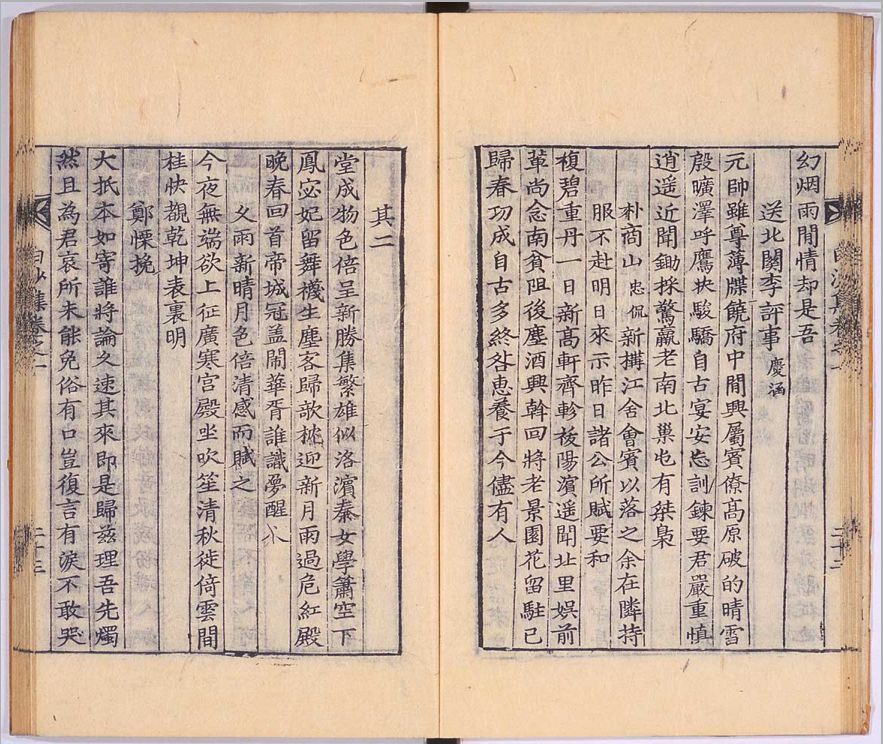 幻烟雨閒情却是吾
送北関李評事慶涵
元帥雖尊薄牒饒府中閒興屬賓僚高原破的晴雪
殷曠澤呼鷹快駿驕自古宴安忘訓鍊要君嚴重慎
逍遥近聞鋤栐驚羸老南北巢屯有桀梟
朴商山忠侃新搆江舍會賓以落之余在隣持
服不赴明日來示昨日諸公所賦要和
複碧重丹一日新高軒齊軫陽濱遥聞北里娱前
輩尚念南貧阻後塵酒興斡回將老景園花留駐已
歸春功成自古多終咎惠養于今儘有人
其二
堂成物色倍呈新勝集繁雄似洛濱秦女學簫空下
鳳宓妃留舞襪生塵客歸歌棹迎新月雨過危紅殿
晚春回首帝城冠盖鬧華胥誰識夢醒人
久雨新晴月色倍清感而賦之
今夜無端欲上征廣寒宫殿坐吹笙清秋徙倚雲間
桂快覩乾坤表裏明
鄭慄挽
大抵本如寄誰將論久速其來即是歸兹理吾先燭
然且為君哀所未能免俗有口豈復言有淚不敢哭
白沙集卷之一
二十三